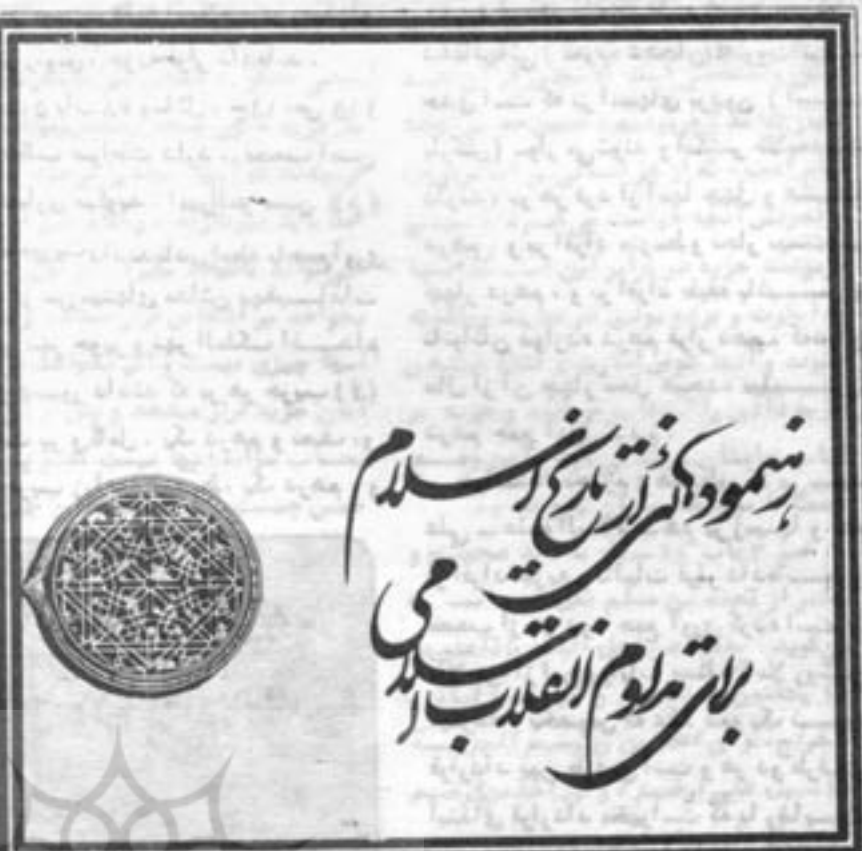 رهنمودهائی از تاریخ اسلام
برای تداوم انقلاب اسلامی